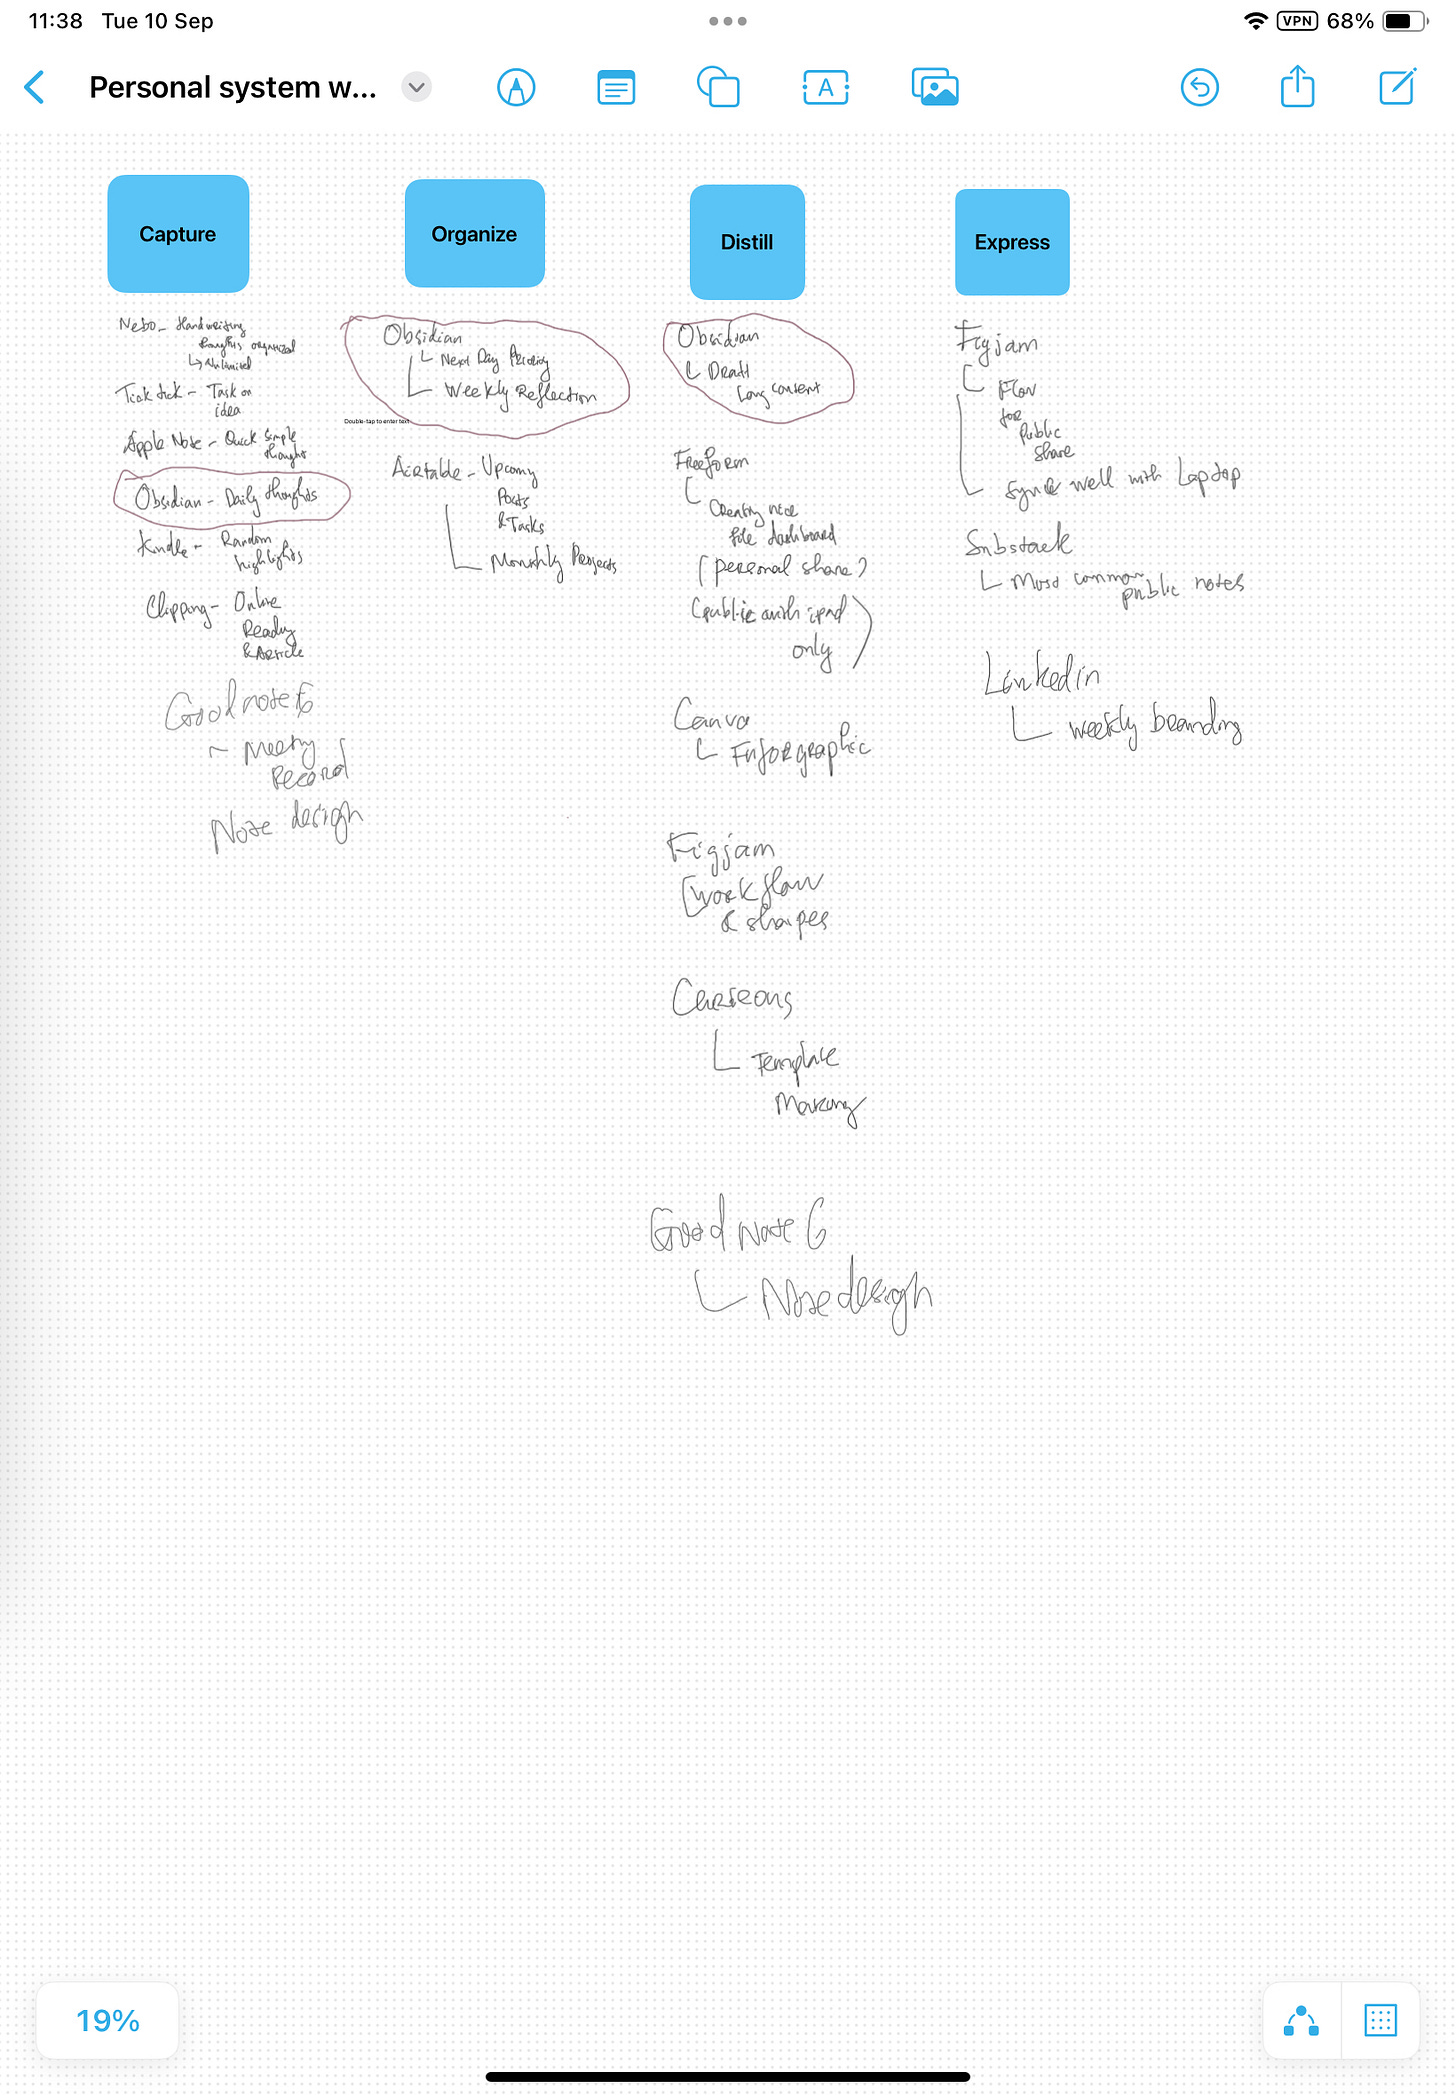 11:38 Tue 10 Sep
VPN 68%
Personal system w...
A
Capture
Nebo - Handwriting
thoughts organized
↳ Unlimited
Tick tick - Task or
idea
Apple Note - Quick simple
thought
Obsidian - Daily thoughts
Kindle - Random
highlights
Clipping - Online
Reading
& Article
Good note 6
- Meeting
Record
Note design
Organize
Obsidian
Next Day Priority
Weekly Reflection
Double-tap to enter text
Airtable - Upcoming
Posts
& Tasks
Monthly Projects
Distill
Obsidian
Draft
Long content
Freeform
Creating nice
file dashboard
(personal share)
(public with ipad
only)
Canva
Inforgraphic
Figjam
workflow
& shapes
Template
Making
Good note 6
Note design
Express
Figjam
Flow
for
Public
share
Sync well with Laptop
Substack
Most common
public notes
Linkedin
weekly branding
19%